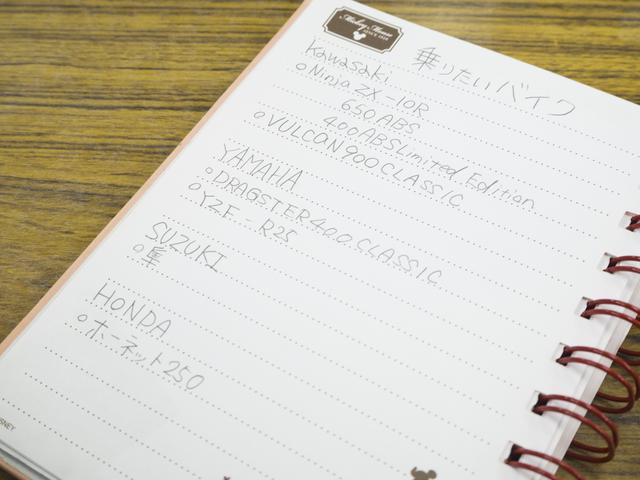 Mickey Mouse
SINCE 1928
乗りたいバイク
Kawasaki
○Ninja ZX-10R
650ABS
400ABS Limited Edition
○VULCAN900CLASSIC
YAMAHA
○DRAGSTER400CLASSIC
○YZF-R25
SUZUKI
○隼
HONDA
○ホーネット250